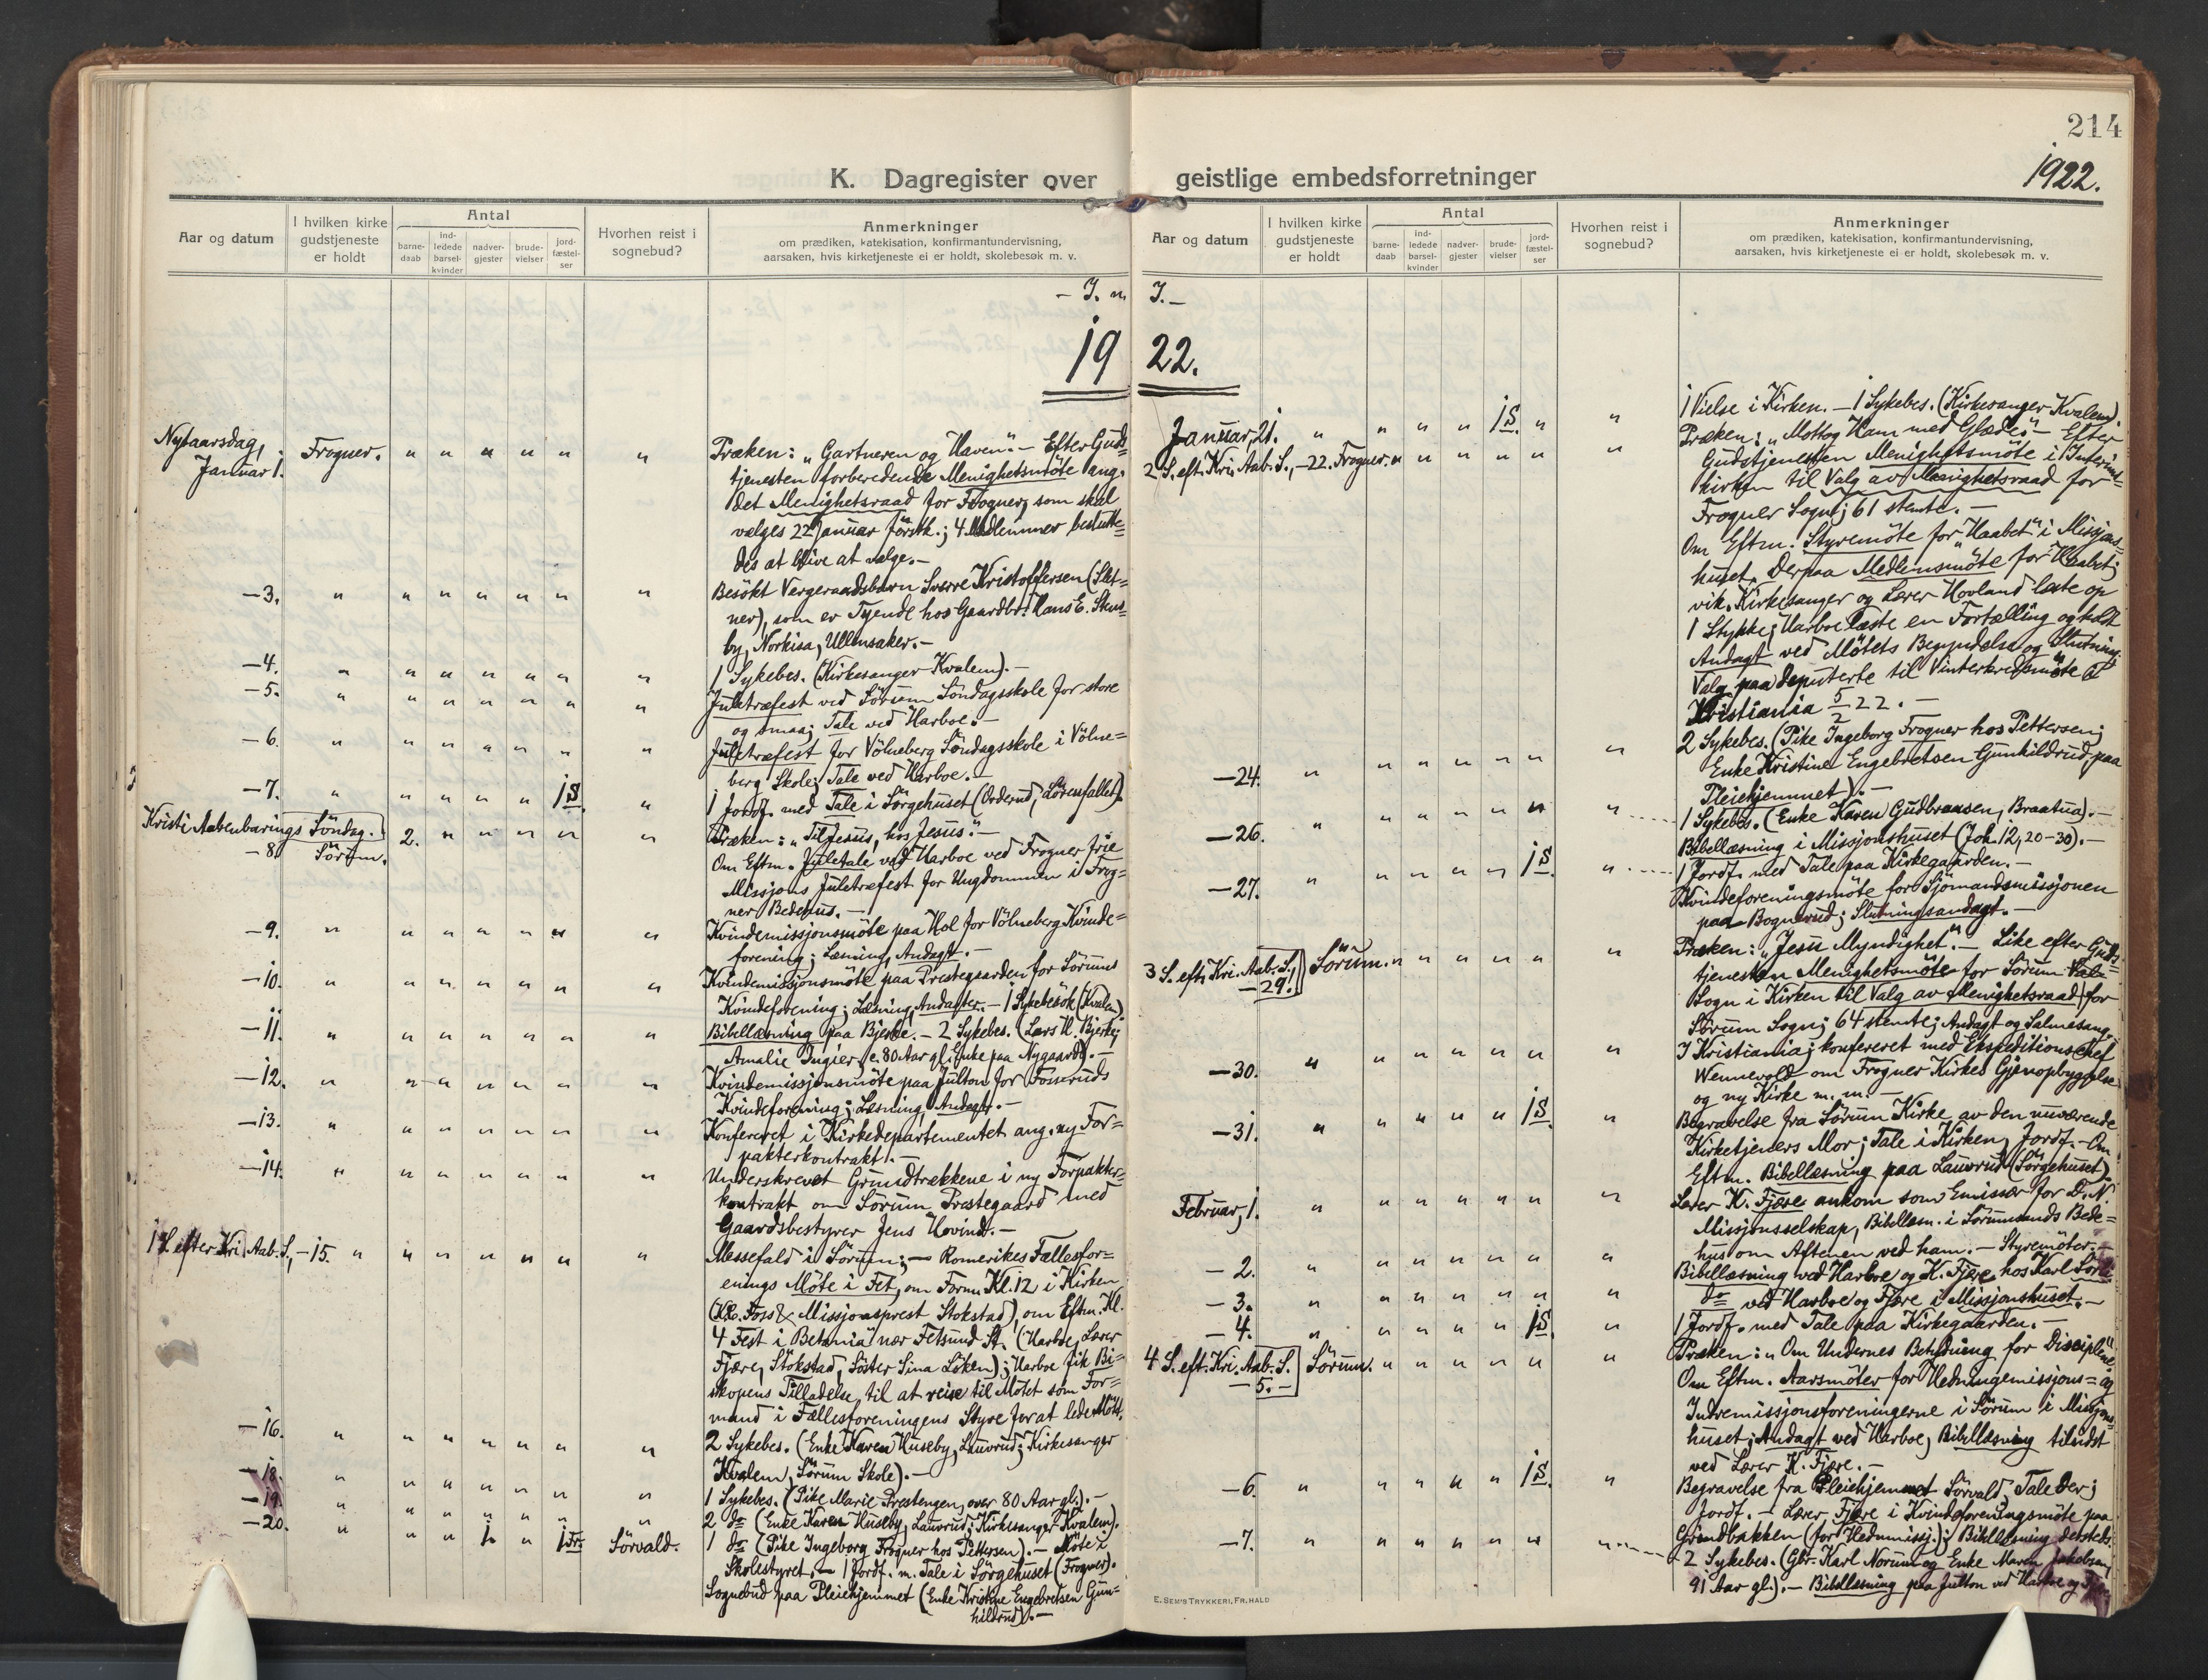 214
1922.
K. Dagregister over geistlige embedsforretninger
Aar og datum
I hvilken kirke gudstjeneste er holdt
Antal
barne-daab
ind-ledede barsel-kvinder
nadver-gjester
brude-vielser
jord-fæstel-ser
Hvorhen reist i sognebud?
Anmerkninger
om prædiken, katekisation, konfirmantundervisning,
aarsaken, hvis kirketjeneste ei er holdt, skolebesøk m. v.
- J. n.
19
Nytaarsdag, Januar 1. Frogner. " " " " " "
Præken: „Gartneren og Haven". - Efter Guds-
tjenesten forberedende Menighetsmöte ang.
det Menighetsraad for Frogner, som skal
vælges 22 Januar förstk.; 4 Medlemmer beslutte=
des at blive at vælge. -
- 3. " " " " " " "
Besökt Vergeraadsbarn Sverre Kristoffersen (Slet=
ner), som er Tjende hos Gaardbr. Hans E. Stens=
by, Norkisa, Ullensaker. -
- 4. " " " " " " "
1 Sykebes. (Kirkesanger Kvalem). -
- 5. " " " " " " "
Juletræfest ved Sörum Söndagsskole for store
og smaa; Tale ved Harboe. -
- 6. " " " " " " "
Juletræfest for Völneberg Söndagsskole i Völne=
berg Skole; Tale ved Harboe. -
- 7. " " " " " 1 S. "
1 Jordf. med Tale i Sörgehuset (Orderud, Sörenfallet).
Kristi Aabenbarings Söndag.
- 8. Sörum. 2. " " " " "
Præken: „Til Jesus, hos Jesus". -
Om Eftm. Juletale ved Harboe ved Frogner frie
Missjons Juletræfest for Ungdommen i Frog=
ner Bedehus. -
- 9. " " " " " " "
Kvindemissjonsmöte paa Hol for Völneberg Kvinde=
forening; Læsning, Andagt. -
- 10. " " " " " " "
Kvindemissjonsmöte paa Prestegaarden for Sörums
Kvindeforening; Læsning, Andagter. - 1 Sykebesök (Kvalem).
- 11. " " " " " " "
Bibellæsning paa Bjerke. - 2 Sykebes. (Lars H. Bjerke;
Amalie Ingier, c. 80 Aar gl. Enke paa Nygaard). -
- 12. " " " " " " "
Kvindemissjonsmöte paa Julton for Fosseruds
Kvindeforening; Læsning, Andagt. -
- 13. " " " " " " "
Konfereret i Kirkedepartementet ang. ny For=
pakterkontrakt. -
- 14. " " " " " " "
Underskrevet Grundtrækkene i ny Forpakter=
kontrakt om Sörum Prestegaard med
Gaardsbestyrer Jens Hovind. -
1 S. efter Kri. Aab. S., - 15. " " " " " " "
Messefald i Sörum; - Romerikes Fællesfor=
enings Möte i Fet, om Form. Kl. 12 i Kirken
(K.O. Foss & Missjonsprest Stokstad), om Eftm. Kl.
4 Fest i „Betania" nær Fetsund St. (Harboe, Lærer
Fjære, Stokstad, Söster Sina Löken); Harboe fik Bi=
skopens Tilladelse til at reise til Mötet som For=
mand i Fællesforeningens Styre for at lede Mötet.
- 16. " " " " " " "
2 Sykebes. (Enke Karen Huseby, Lauvrud; Kirkesanger
Kvalem, Sörum Skole). -
- 18. " " " " " " "
1 Sykebes. (Pike Marie Prestengen, over 80 Aar gl.). -
- 19. " " " " " " "
2 do (Enke Karen Huseby, Lauvrud; Kirkesanger Kvalem).
- 20. " " " 1. " 1 Fr. Sörvald.
1 do (Pike Ingeborg Frogner hos Pettersen). - Möte i
Skolestyret. - 1 Jordf. m. Tale i Sörgehuset (Frogner).
Sognebud paa Pleiehjemmet (Enke Kristine Engebretsen Gun=
hildrud). -
Aar og datum
I hvilken kirke gudstjeneste er holdt
Antal
barne-daab
ind-ledede barsel-kvinder
nadver-gjester
brude-vielser
jord-fæstel-ser
Hvorhen reist i sognebud?
Anmerkninger
om prædiken, katekisation, konfirmantundervisning,
aarsaken, hvis kirketjeneste ei er holdt, skolebesøk m. v.
J. -
22.
Januar, 21. " " " " 1 S. " "
1 Vielse i Kirken. - 1 Sykebes. (Kirkesanger Kvalem).
2 S. eft. Kri. Aab. S., - 22. Frogner. " " " " " "
Præken: „Mottog Ham med Glæde". - Efter
Gudstjenesten Menighetsmöte i Interims-
kirken til Valg av Menighetsraad for
Frogner Sogn; 61 stemte. -
Om Eftm. Styremöte for „Haabet" i Missjons=
huset. Derpaa Medlemsmöte for Haabet;
vik. Kirkesanger og Lærer Hovland læste op
1 Stykke; Harboe læste en Fortælling og holdt
Andagt ved Mötets Begyndelse og Slutning;
Valg paa deputerte til Vinterkredsmöte i
Kristiania 5/2 22. -
- 24. " " " " " " "
2 Sykebes. (Pike Ingeborg Frogner hos Pettersen;
Enke Kristine Engebretsen Gunhildrud, paa
Pleiehjemmet). -
- 26. " " " " " " "
1 Sykebes. (Enke Karen Gudbransen, Braatua). -
Bibellæsning i Missjonshuset (Joh. 12, 20-30). -
- 27. " " " " " 1 S. "
1 Jordf. med Tale paa Kirkegaarden. -
Kvindeforeningsmöte for Sjömandsmissjonen
paa Bognerud; Slutningsandagt. -
3 S. eft. Kri. Aab. S., - 29. Sörum. " " " " " "
Præken: „Jesu Myndighet". - Like efter Guds=
tjenesten Menighetsmöte for Sörum
Sogn i Kirken til Valg av Menighetsraad for
Sörum Sogn; 64 stemte; Andagt og Salmesang.
- 30. " " " " " " "
I Kristiania; konfereret med Ekspeditionschef
Wennevold om Frogner Kirkes Gjenopbyggelse
og ny Kirke m. m. -
- 31. " " " " " 1 S. "
Begravelse fra Sörum Kirke av den nuværende
Kirketjeners Mor; Tale i Kirken, Jordf. - Om
Eftm. Bibellæsning paa Lauvrud (Sörgehuset).
Februar, 1. " " " " " " "
Lærer K. Fjære ankom som Emissær for D. N.
Missjonsselskap, Bibellæsn. i Sörumsands Bede=
hus om Aftenen ved ham. - Styremöter. -
- 2. " " " " " " "
Bibellæsning ved Harboe og K. Fjære hos Karl Sörli.
- 3. " " " " " " "
do ved Harboe og Fjære i Missjonshuset. -
- 4. " " " " " 1 S. "
1 Jordf. med Tale paa Kirkegaarden. -
4 S. eft. Kri. Aab. S. - 5. - Sörum. " " " " " "
Præken: „Om Undernes Betydning for Disciplene".
Om Eftm. Aarsmöter for Hedningemissjons= og
Indremissjonsforeningerne i Sörum i Missjons=
huset; Andagt ved Harboe, Bibellæsning tilsidst
ved Lærer K. Fjære. -
- 6. " " " " " 1 S. "
Begravelse fra Pleiehjemmet Sörvald, Tale der;
Jordf. - Lærer Fjære i Kvindeforeningsmöte paa
Grindbakken (for Hednmissj.); Bibellæsning dersteds.
- 7. " " " " " " "
2 Sykebes. (Gbr. Karl Norum og Enke Maren Jakobsen,
91 Aar gl.). - Bibellæsning paa Julton ved Harboe og
E. SEM'S TRYKKERI, FR.HALD